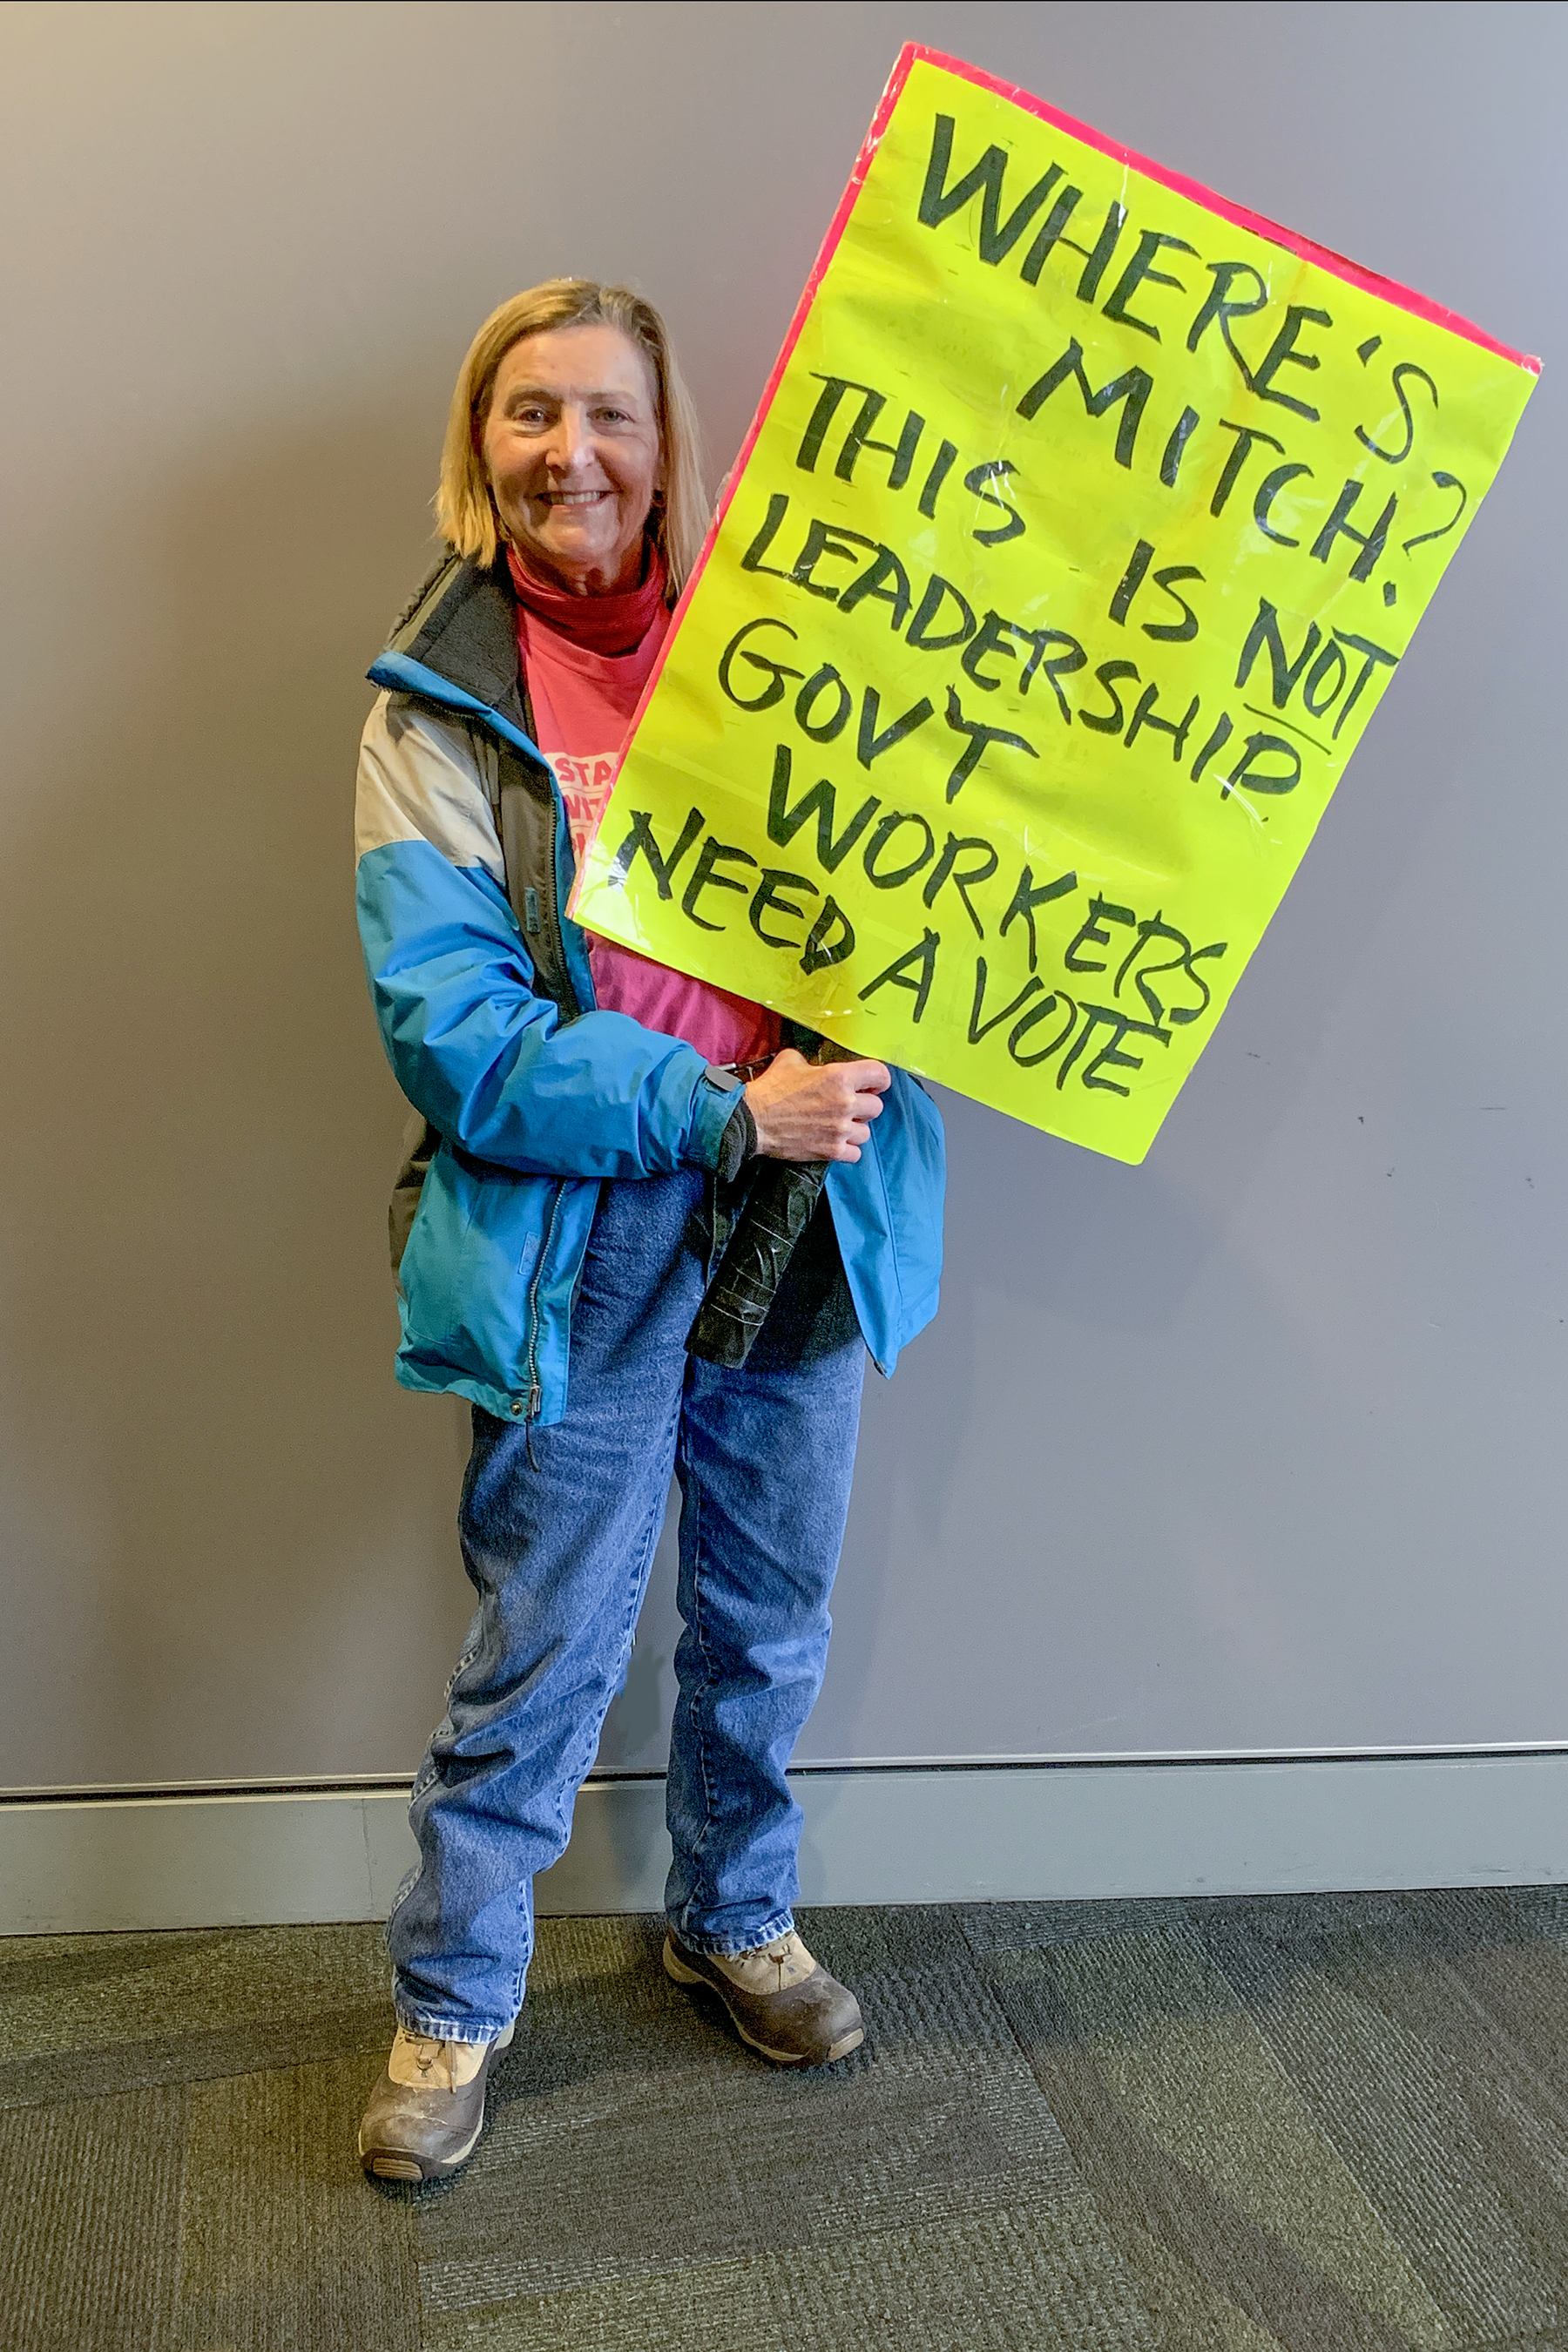 WHERE'S
MITCH?
THIS IS NOT
LEADERSHIP.
GOV'T
WORKERS
NEED A VOTE